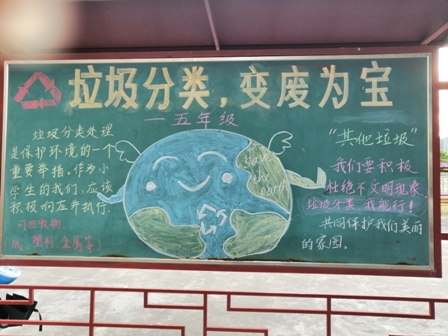 垃圾分类,变废为宝
一五年级
垃圾分类处理
是保护环境的一个
重要举措,作为小
学生的我们,应该
积极响应并执行.
可回收物
(纸,塑料,金属等)
save
the
earth
"其他垃圾"
我们要积极
杜绝不文明现象
垃圾分类 我能行!
共同保护我们美丽
的家园.